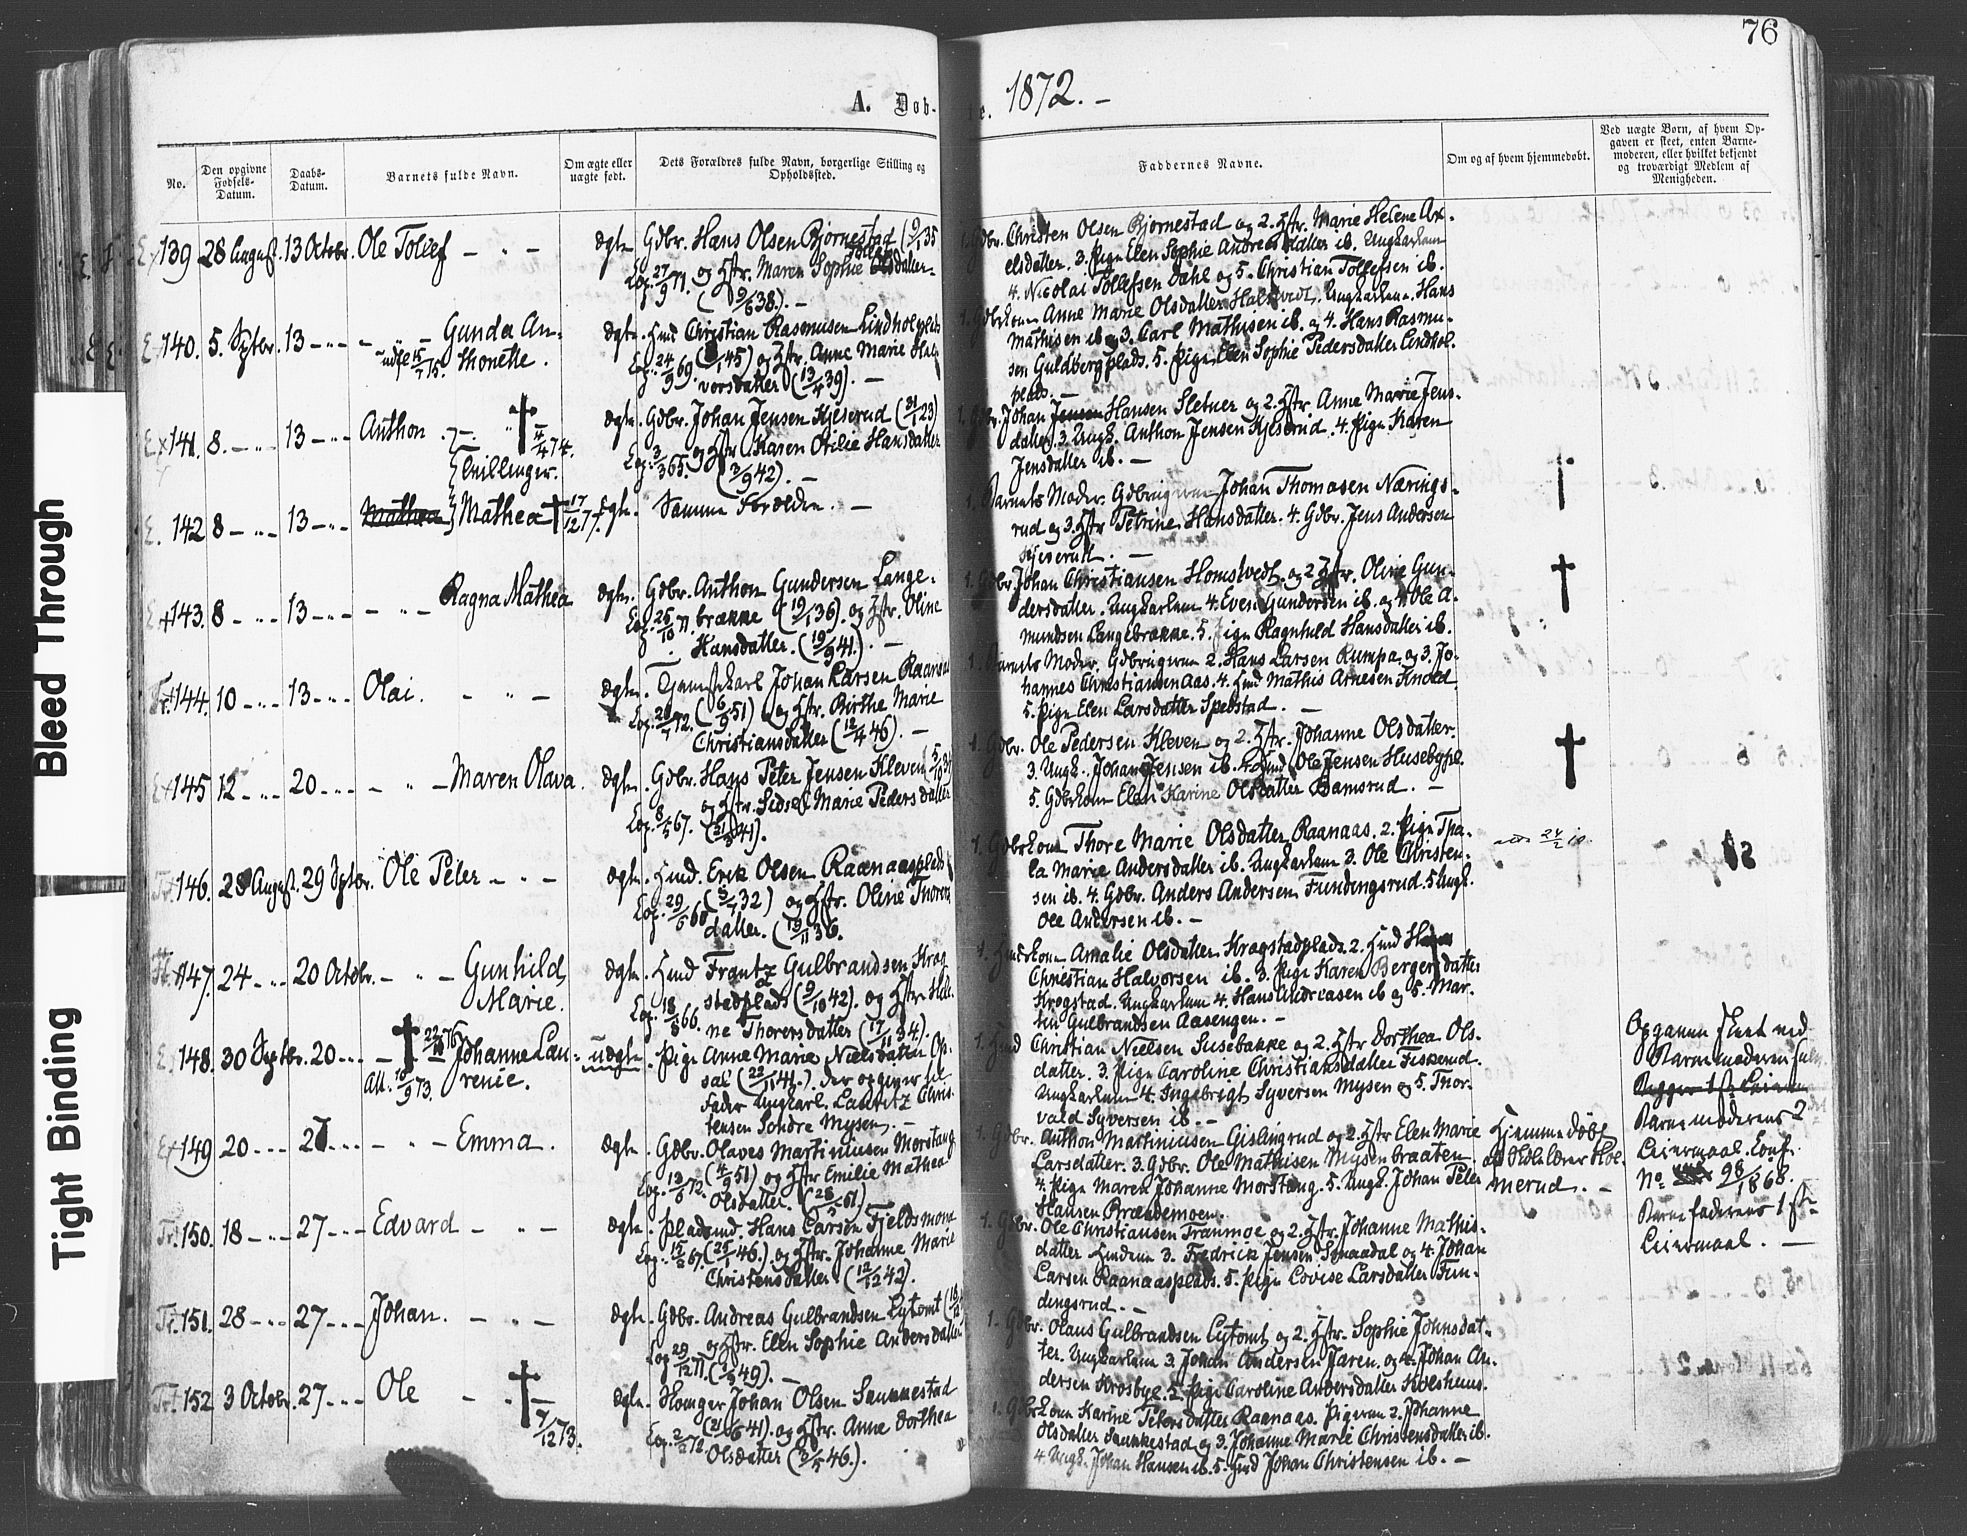 76
A. Døb-
te. 1872. –
No.
Den opgivne Fødsels-Datum.
Daabs-Datum.
Barnets fulde Navn.
Om ægte eller uægte født.
Dets Forældres fulde Navn, borgerlige Stilling og Opholdssted.
Faddernes Navne.
Om og af hvem hjemmedøbt.
Ved uægte Børn, af hvem Opgaven er skeet, enten Barnemoderen, eller hvilket bekjendt og troværdigt Medlem af Menigheden.
139 28 August. 13 Octobr. Ole Tollef – " – ægte. Gdbr. Hans Olsen Bjørnestad (9/1 35
og Hstr. Maren Sophie
(9/6 38.). –
1. Gdbr. Christen Olsen Bjørnestad og 2. Hstr. Marie Helene Ax-
elsdatter. 3. Pige Elen Sophie Andreasdatter ib. Ungkarlene
4. Nicolai Tollefsen Dahl og 5. Christian Tollefsen ib.
140. 5. Septbr. 13 – " – – " – Gunda An-
thonette.
ægte. Hmd Christian Rasmusen Lindholplads
Eg. 24/9 69 og Hstr. Anne Marie Hal-
vorsdatter (13/4 39). –
1. Gdbrkone Anne Marie Olsdatter Ungkarlene. Hans
Mathisen ib og 3. Carl Mathisen ib. og 4. Hans Rasmu-
sen Guldbergplads. 5. Pige Elen Sophie Pedersdatter Lindhol-
plads. –
141. 8. – " – 13 – " – Anthon
4/4 74.
Tvillinger.
ægte. Gdbr. Johan Jensen Kjeserud (31/1 23)
og Hstr Karen Otilie Hansdatter
(2/9 42). –
1. Gdbr. Johan Hansen Sletner og 2. Hstr. Anne Marie Jens-
datter. 3. Ungk. Anthon Jensen Kjeserud. 4. Pige Karen
Jensdatter ib. –
142 8 – " – 13 – " – Mathea 17/12 77. ægte. Samme Forældre. –
1. Barnets Moder. Gdbrugerne Johan Thomasen Nærings-
rud og 3. Hstr Petrine Hansdatter. 4. Gdbr. Jens Andersen
Kjeserud. –
143. 8 – " – 13 – " – – " – Ragna Mathea ægte. Gdbr. Anthon Gundersen Lange-
brække (19/1 36). og Hstr. Oline
Hansdatter. (19/9 41.). –
1. Gdbr Johan Christiansen Homstvedt. og 2 Hstr. Oline Gun-
dersdatter. Ungkarlene 4. Even Gundersen ib. og 4. Ole A-
mundsen Langebrække. 5. Pige Ragnhild Hansdatter ib.
144. 10 – " – 13 – " – Olai. – " – ægte. Tjenestekarl Johan Larsen Raanaas
(6/9 51) og Hstr. Birthe Marie
Christiansdatter (12/4 46). –
1. Barnets Moder. Gdbrugerne 2. Hans Larsen Rumpa og 3. Jo-
hannes Christiansen Aas. 4. Hmd Mathis Arnesen Knold
5. Pige Elen Larsdatter Spetstad. –
145 12 – " – 20 – " – – " – Maren Olava. ægte. Gdbr. Hans Peter Jensen Kleven
og Hstr. Sidsel Marie Pedersdatter
Eg. 8/5 67.
1. Gdbr. Ole Pedersen Kleven og 2. Hstr. Johanne Olsdatter.
3. Ungk. Johan Jensen ib. 4. Hmd Ole Jensen Husebypl.
5. Gdbrkone Elen Karine Olsdatter Damsrud. –
146. August. 29 Septbr. Ole Peter – " – ægte. Hmd. Erik Olsen Raanaasplads
og Hstr. Oline Thorers
datter. (19/11 36.
1. Gdbrkone Thore Marie Olsdatter Raanaas. 2. Pige Tpa-
la Marie Andersdatter ib. Ungkarlene 3. Ole Christen-
sen ib. 4. Gdbr. Anders Andersen Fundingsrud. 5. Ungk.
Ole Andersen ib. –
147. 24 – " – 20 Octobr. – " – Gunhild
Marie.
ægte. Hmd Frantz Gulbrandsen Krog-
stadplads (9/10 42). og Hstr Hele-
ne Thorersdatter (17/11 34.).
Eg. 18/8 66.
1. Hmdskone Amalie Olsdatter Krogstadplads. 2. Hmd
Christian Halvorsen ib. 3. Pige Karen Bergersdatter
Krogstad. Ungkarlene 4. Hans Andreasen ib og 5. Mar-
tin Gulbrandsen Aasengen. –
148. 30 Septbr. 20 – " – Johanne Lau-
renie.
Att. 10/9 73.
uægte. Pige Anne Marie Nielsdatter Op-
sal (22/11 41.). Der opgiver til
Fader Ungkarl. Lauritz Chris-
tensen Søndre Mysen. –
1. Hmd Christian Nielsen Susebakke og 2. Hstr Dorthea Ols-
datter. 3. Pige Caroline Christiansdatter Fiskerud.
Ungkarlene 4. Ingebrigt Syversen Mysen og 5. Thor-
vald Syversen ib. –
Opgaven skeet ved
Barnemoderen selv.
Barnemoderens 2
Leiermaal. Conf.
No 98/1868.
Barnefaderens 1ste
Leiermaal. –
149 20 – " – 27 – " – – " – Emma. ægte. Gdbr. Olaves Martiniusen Morstang
(4/9 51) og Hstr Emilie Mathea
Olsdatter. (28/2 61)
1. Gdbr. Anthon Martiniusen Gislingrud og 2. Hstr Elen Marie
Larsdatter. 3. Gdbr. Ole Mathisen Mysenbraaten.
4. Pige Maren Johanne Morstang. 5. Ungk. Johan Peter
Hansen Brændemoen.
Hjemmedøbt
af Skolelærer Hol-
merud. –
150. 18 – " – 27 – " – Edvard – " – ægte. Pladsmd. Hans Larsen Fjeldsmona
Eg. 15/2 67. og Hstr. Johanne Marie
Christensdatter (12/12 42).
1. Gdbr. Ole Christiansen Tranmoe og 2. Hstr. Johanne Mathis-
datter. Hmdene 3. Fredrick Jensen Smaadal og 4. Johan
Larsen Raanaasplads. 5. Pige Lovise Larsdatter Fun-
dingsrud. –
151. 28 – " – 27 – " – Johan. – " – ægte. Gdbr. Andreas Gulbrandsen Lytomt
og Hstr. Elen Sophie Andersdatter
Eg. 29/12 71.
1. Gdbr. Olaus Gulbrandsen Lytomt og 2. Hstr. Sophie Johnsdat-
ter. Ungkarlene 3. Johan Andersen Jaren. og 4. Johan An-
dersen Krosbye. 5. Pige Caroline Andersdatter Kolshuus.
152 3 Octobr. 27 – " – Ole – " –
7/12 73.
ægte. Johan Olsen Sankestad
(21/6 41). og Hstr. Anne Dorthea
Olsdatter (2/5 46.).
1. Gdbrkone Karine Petersdatter Raanaas. Pigerne 2. Johanne
Olsdatter Sankkestad og 3. Johanne Marie Christensdatter ib.
4. Ungk. Johan Hansen ib. 5. Hmd Johan Christensen ib. –
Bleed Through
Tight Binding